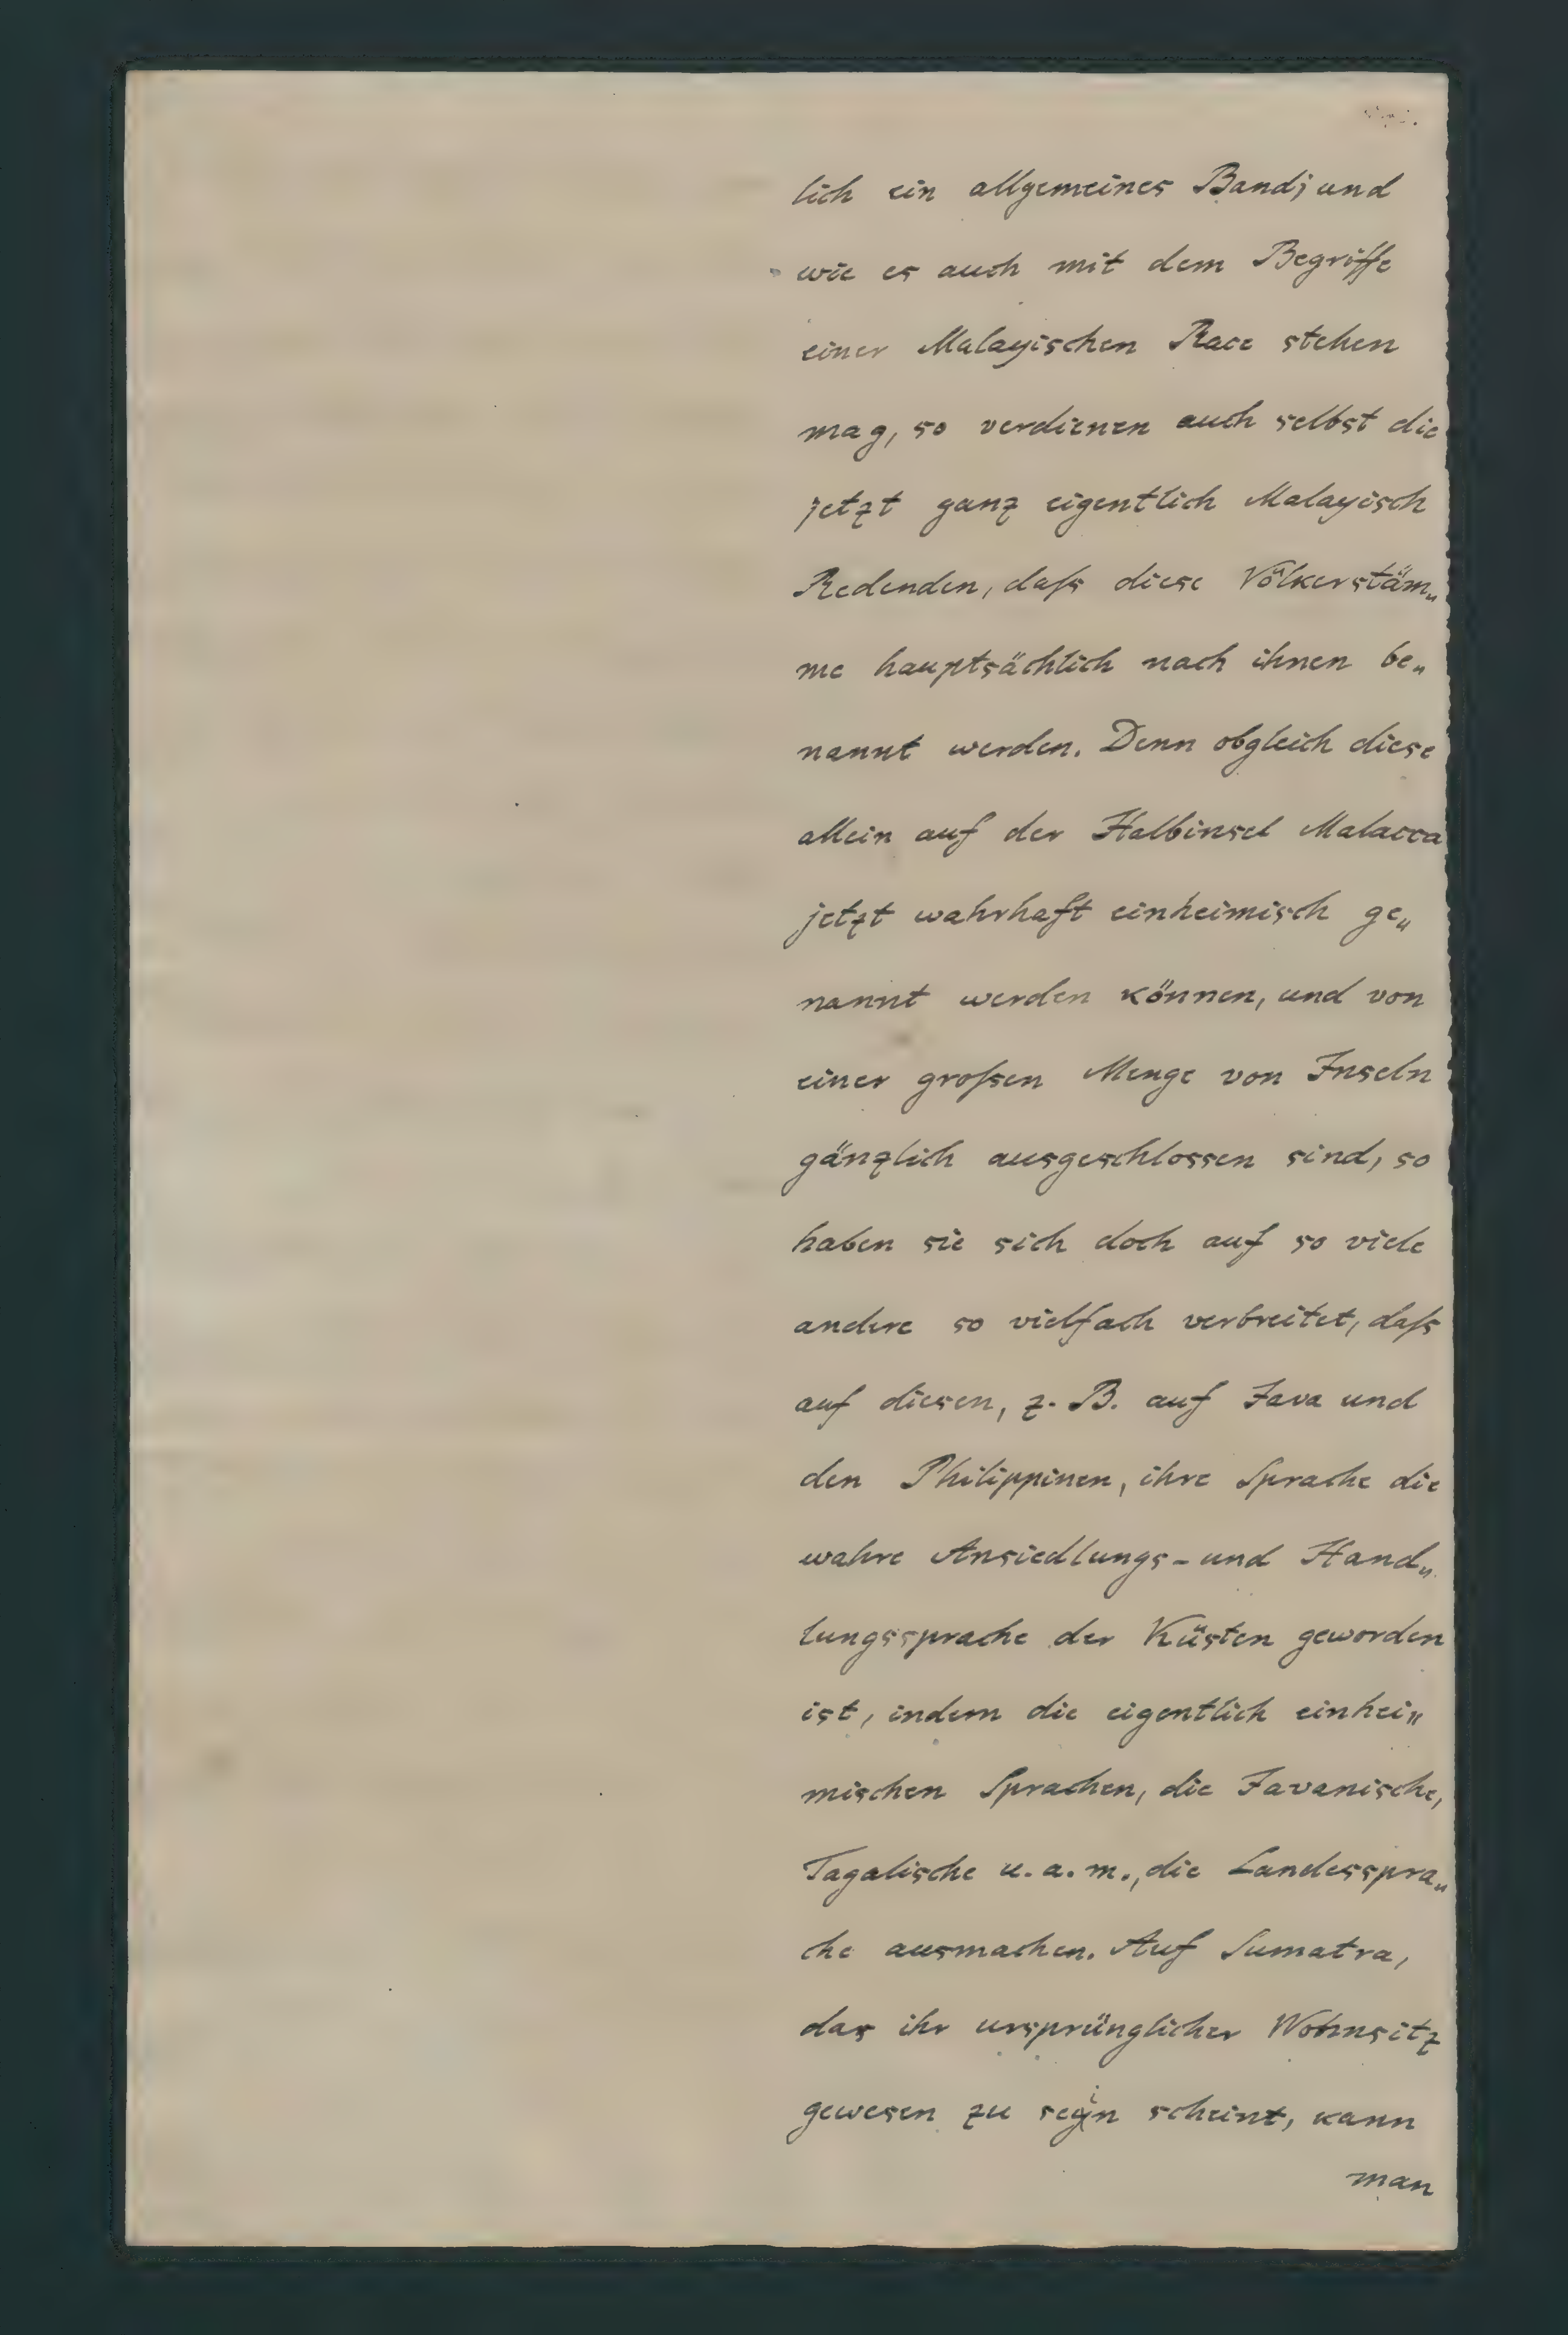 lich ein allgemeines Band; und
wie es auch mit dem Begriffe
einer Malayischen Race stehen
mag, so verdienen auch selbst die
jetzt ganz eigentlich Malayisch
Redenden, daſs diese Völkerstäm„
me hauptsächlich nach ihnen be„
nannt werden. Denn obgleich diese
allein auf der Halbinsel Malacca
jetzt wahrhaft einheimisch ge„
nannt werden können, und von
einer groſsen Menge von Inseln
gänzlich ausgeschlossen sind, so
haben sie sich doch auf so viele
andere so vielfach verbreitet, daſs
auf diesen, z. B. auf Java und
den Philippinen, ihre Sprache die
wahre Ansiedlungs- und Hand„
lungssprache der Küsten geworden
ist, indem die eigentlich einhei„
mischen Sprachen, die Javanische,
Tagalische u. a. m., die Landesspra„
che ausmachen. Auf Sumatra,
das ihr ursprünglicher Wohnsitz
gewesen zu sein scheint, kann
man